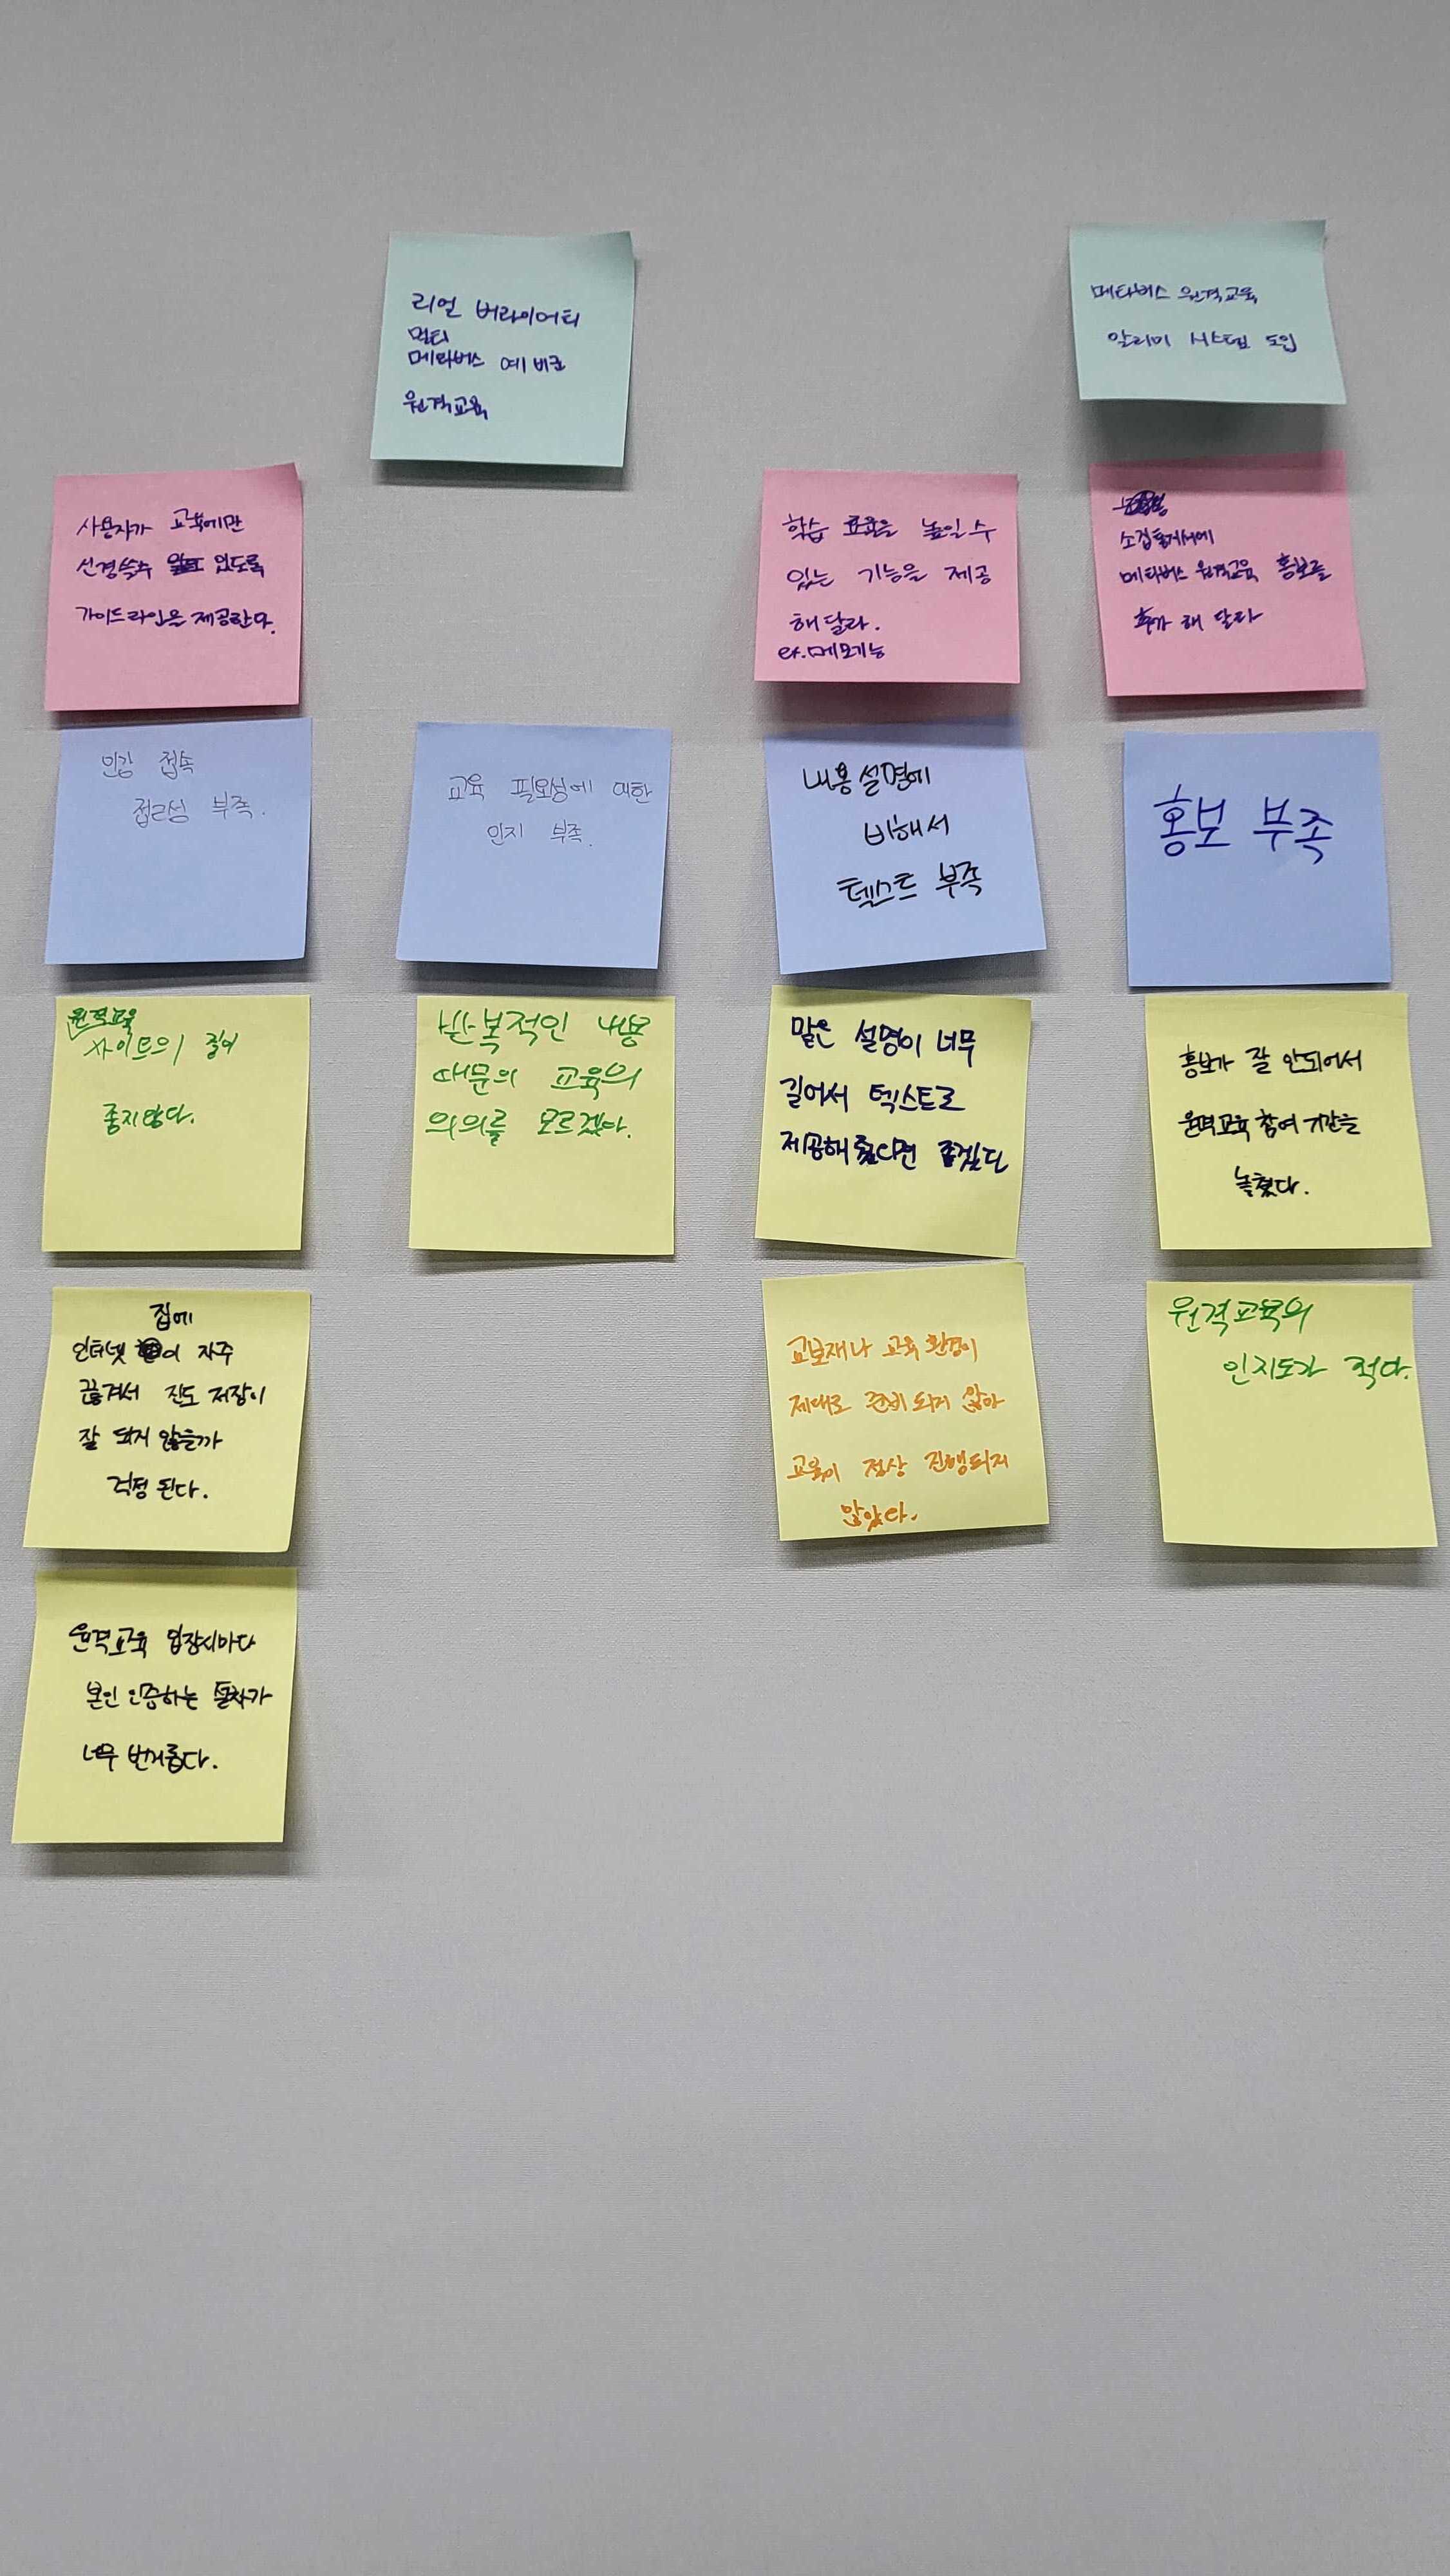 리얼 버라이어티
멀티
메타버스 예비군
원격교육
메타버스 원격교육
알리미 시스템 도입
사용자가 교육에만
신경쓸수 있도록
가이드라인을 제공한다.
학습 효율을 높일 수
있는 기능을 제공
해달라.
ex.메모기능
소집통지서에
메타버스 원격교육 홍보를
추가 해 달라
인강 접속
접근성 부족.
교육 필요성에 대한
인지 부족.
내용 설명에
비해서
텍스트 부족
홍보 부족
원격교육
사이트의 질이
좋지않다.
반복적인 내용
때문의 교육의
의의를 모르겠다.
많은 설명이 너무
길어서 텍스트로
제공해줬다면 좋겠다
홍보가 잘 안되어서
원격교육 참여 기간을
놓쳤다.
집에
인터넷 이 자주
끊겨서 진도 저장이
잘 되지 않을까
걱정 된다.
교보재나 교육 환경이
제대로 준비 되지 않아
교육이 정상 진행되지
않았다.
원격교육의
인지도가 적다.
원격교육 입장시마다
본인 인증하는 절차가
너무 번거롭다.